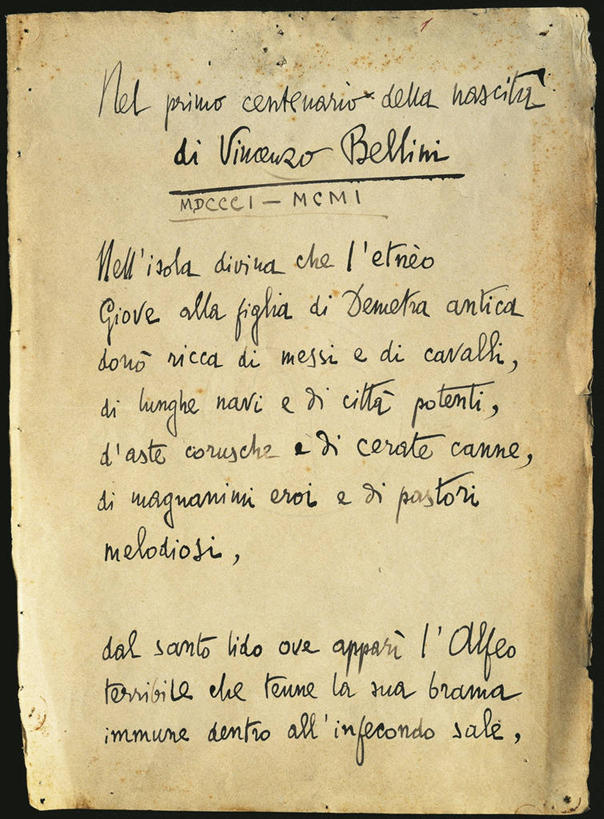 Nel primo centenario della nascita
di Vincenzo Bellini
MDCCCI — MCMI
Nell'isola divina che l'etnèo
Giove alla figlia di Demetra antica
donò ricca di messi e di cavalli,
di lunghe navi e di città potenti,
d'aste corusche e di cerate canne,
di magnanimi eroi e di pastori
melodiosi,
dal santo lido ove apparì l'Alfeo
terribile che tenne la sua brama
immune dentro all'infecondo sale,